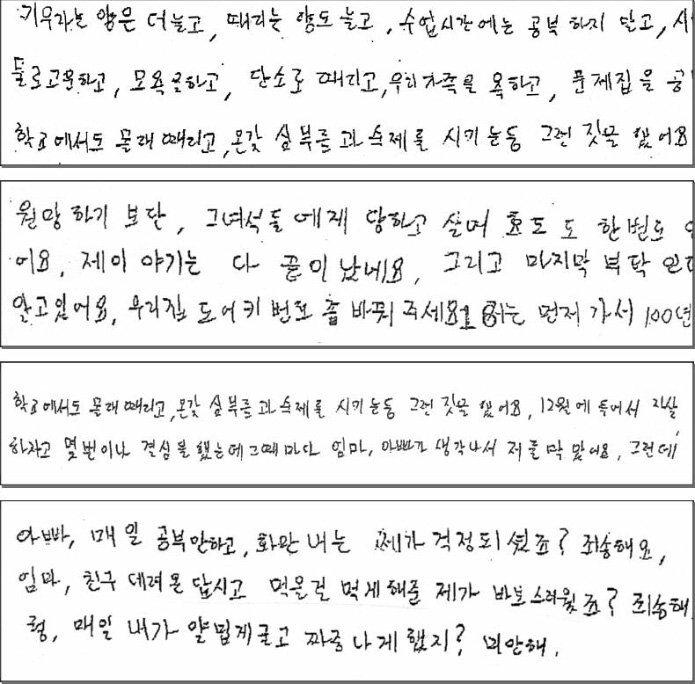 키우라는 양은 더 늘고, 때리는 양도 늘고, 수업시간에는 공부하지 말고,
물로 고문하고, 모욕을하고, 단소로 때리고, 우리가족을 욕하고, 문제집을 공
학교에서도 몰래 때리고, 온갖 심부름과 숙제를 시키는등 그런 짓을 했어요
원망하기 보단, 그녀석들에게 당하고 살며 효도도 한번도
어요, 제 이야기는 다 끝이 났네요, 그리고 마지막 부탁인데
알고있어요, 우리집 도어키 번호 좀 바꿔주세요. 저는 먼저 가서 100년
학교에서도 몰래 때리고, 온갖 심부름과 숙제를 시키는등 그런 짓을 했어요, 12월에 들어서 자살
하자고 몇번이나 결심을 했는데 그때마다 엄마, 아빠가 생각나서 저를 막았어요, 그런데
아빠, 매일 공부안하고, 화만 내는 제가 걱정되셨죠? 죄송해요,
엄마, 친구 데려온답시고 먹을걸 먹게해준 제가 바보스러웠죠? 죄송해
형, 매일 내가 얄밉게굴고 짜증나게 했지? 미안해,